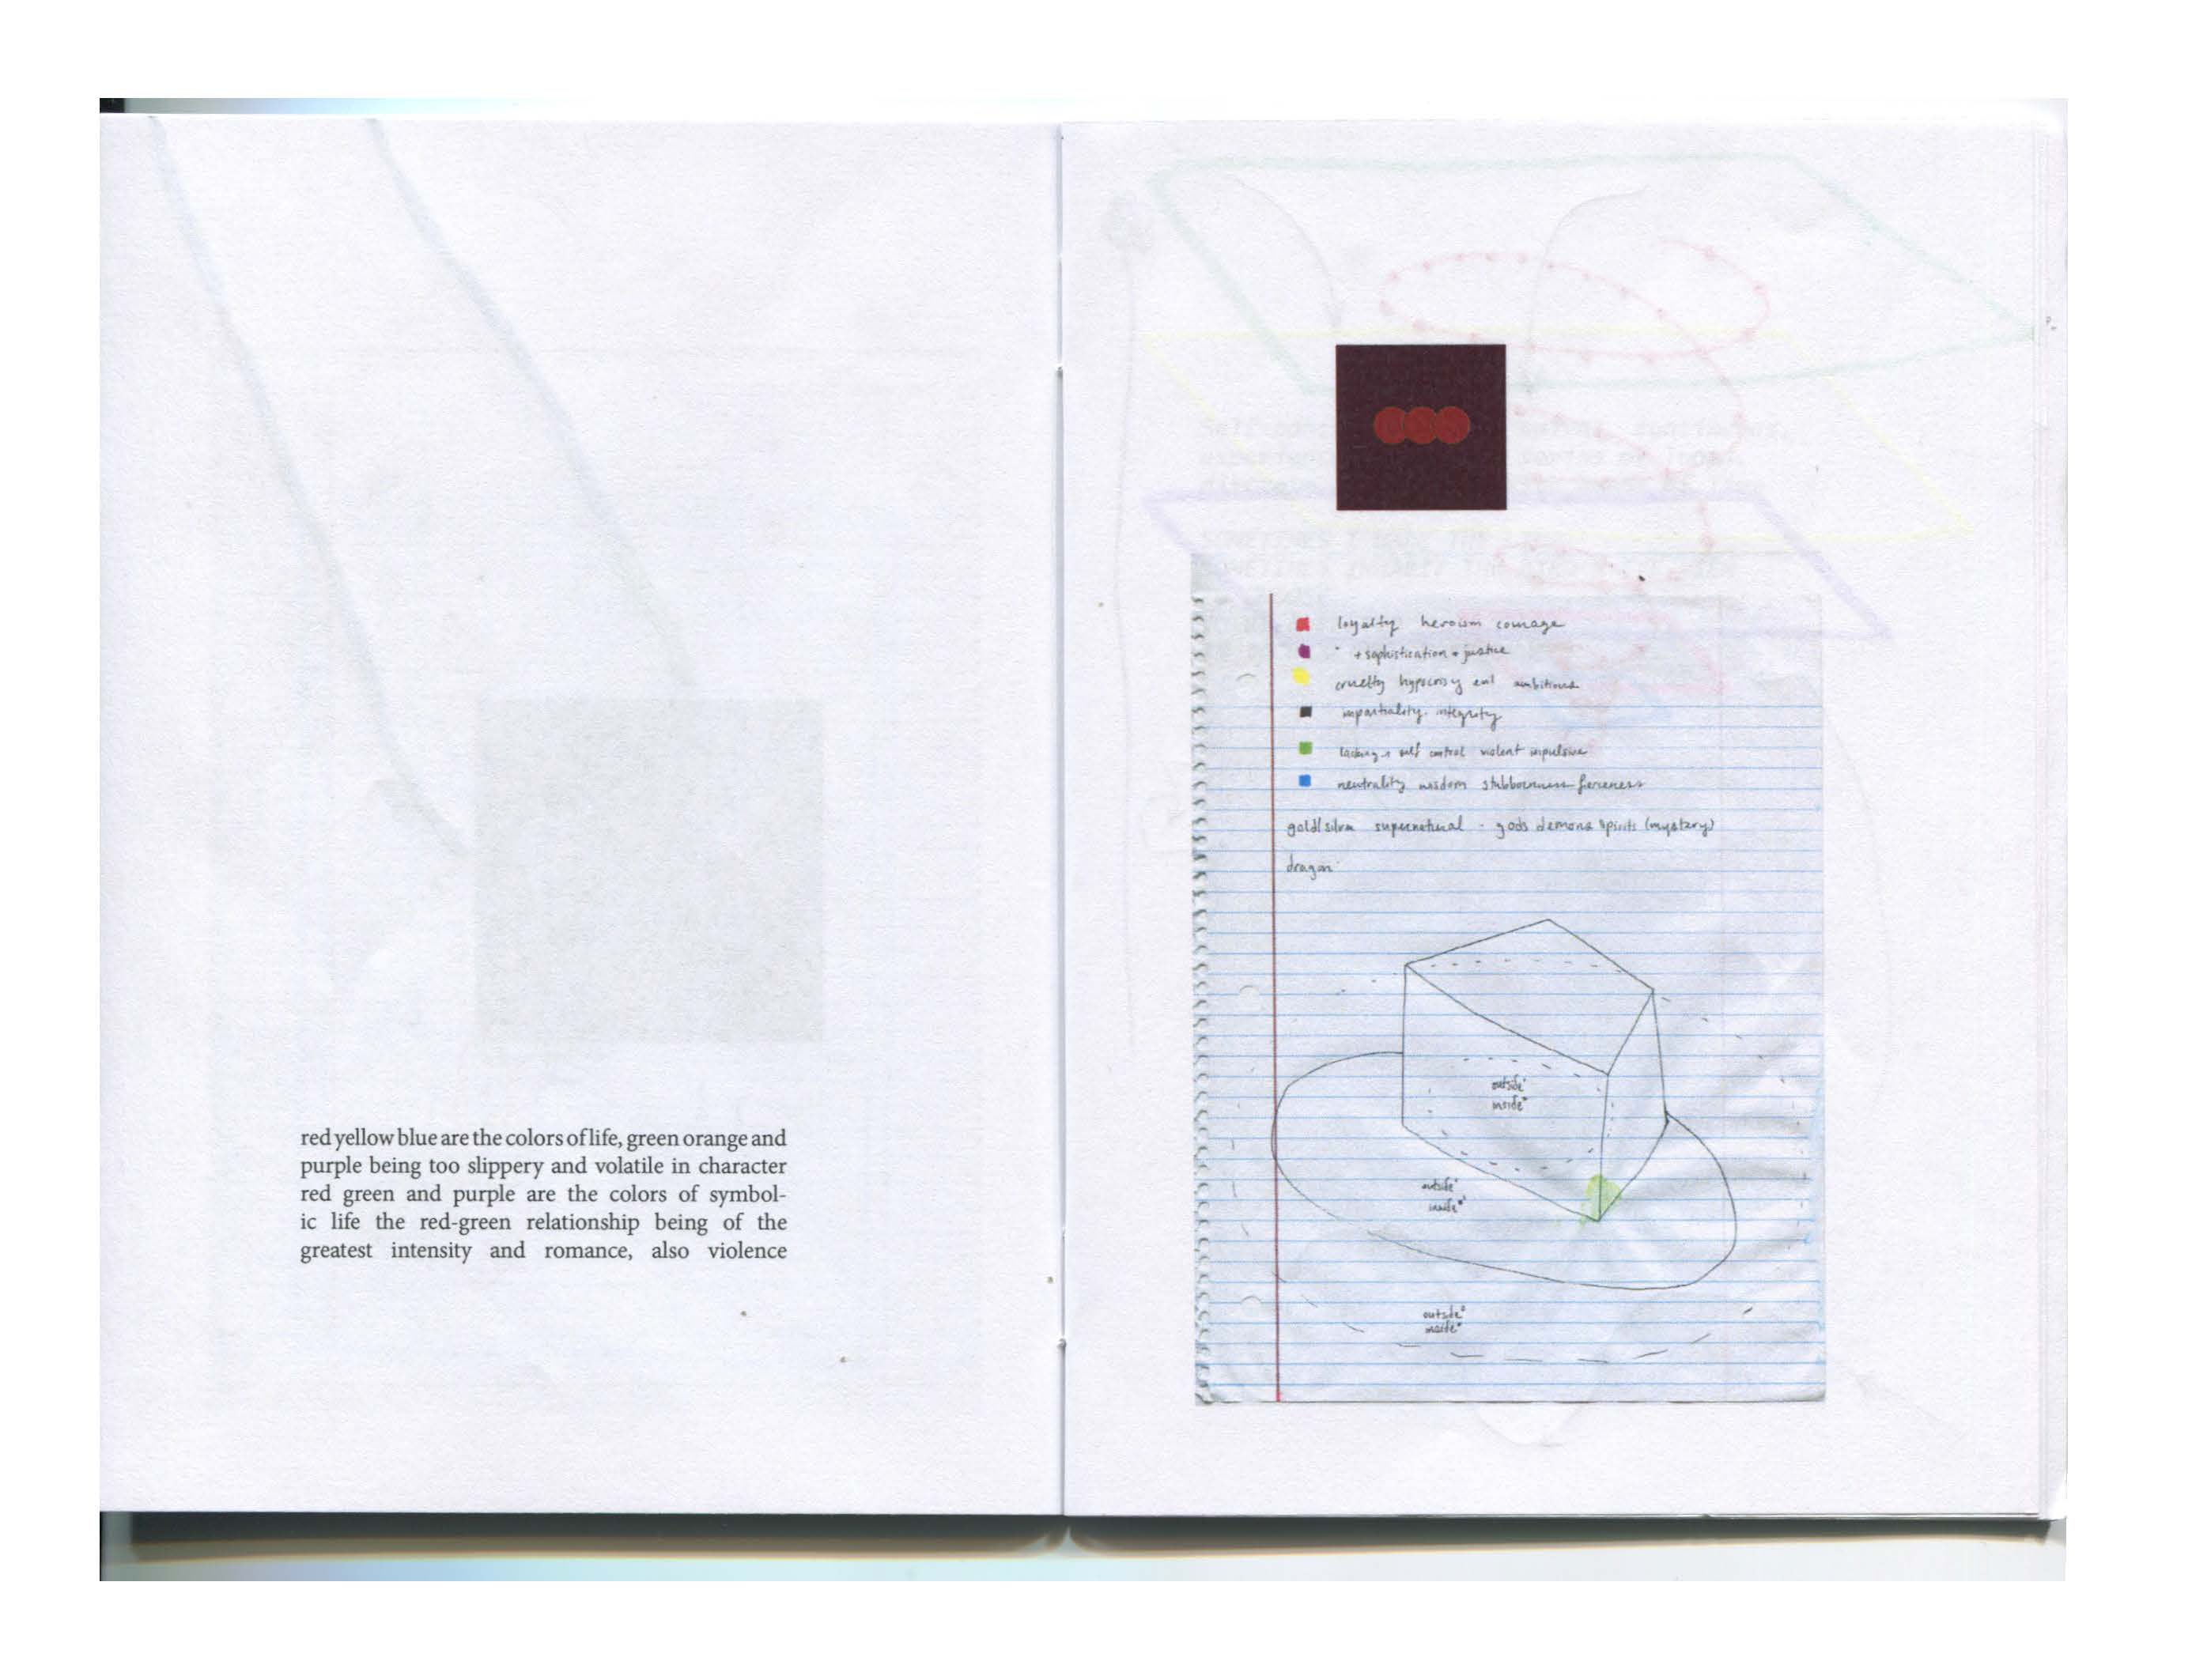 red yellow blue are the colors of life, green orange and
purple being too slippery and volatile in character
red green and purple are the colors of symbol-
ic life the red-green relationship being of the
greatest intensity and romance, also violence
loyalty heroism courage
" + sophistication + justice
cruelty hypocrisy evil ambitious
impartiality. integrity
lacking self control violent impulsive
neutrality wisdom stubbornness fierceness
gold/silver supernatural - gods demons spirits (mystery)
dragon
outside
inside
outside
inside
outside
inside